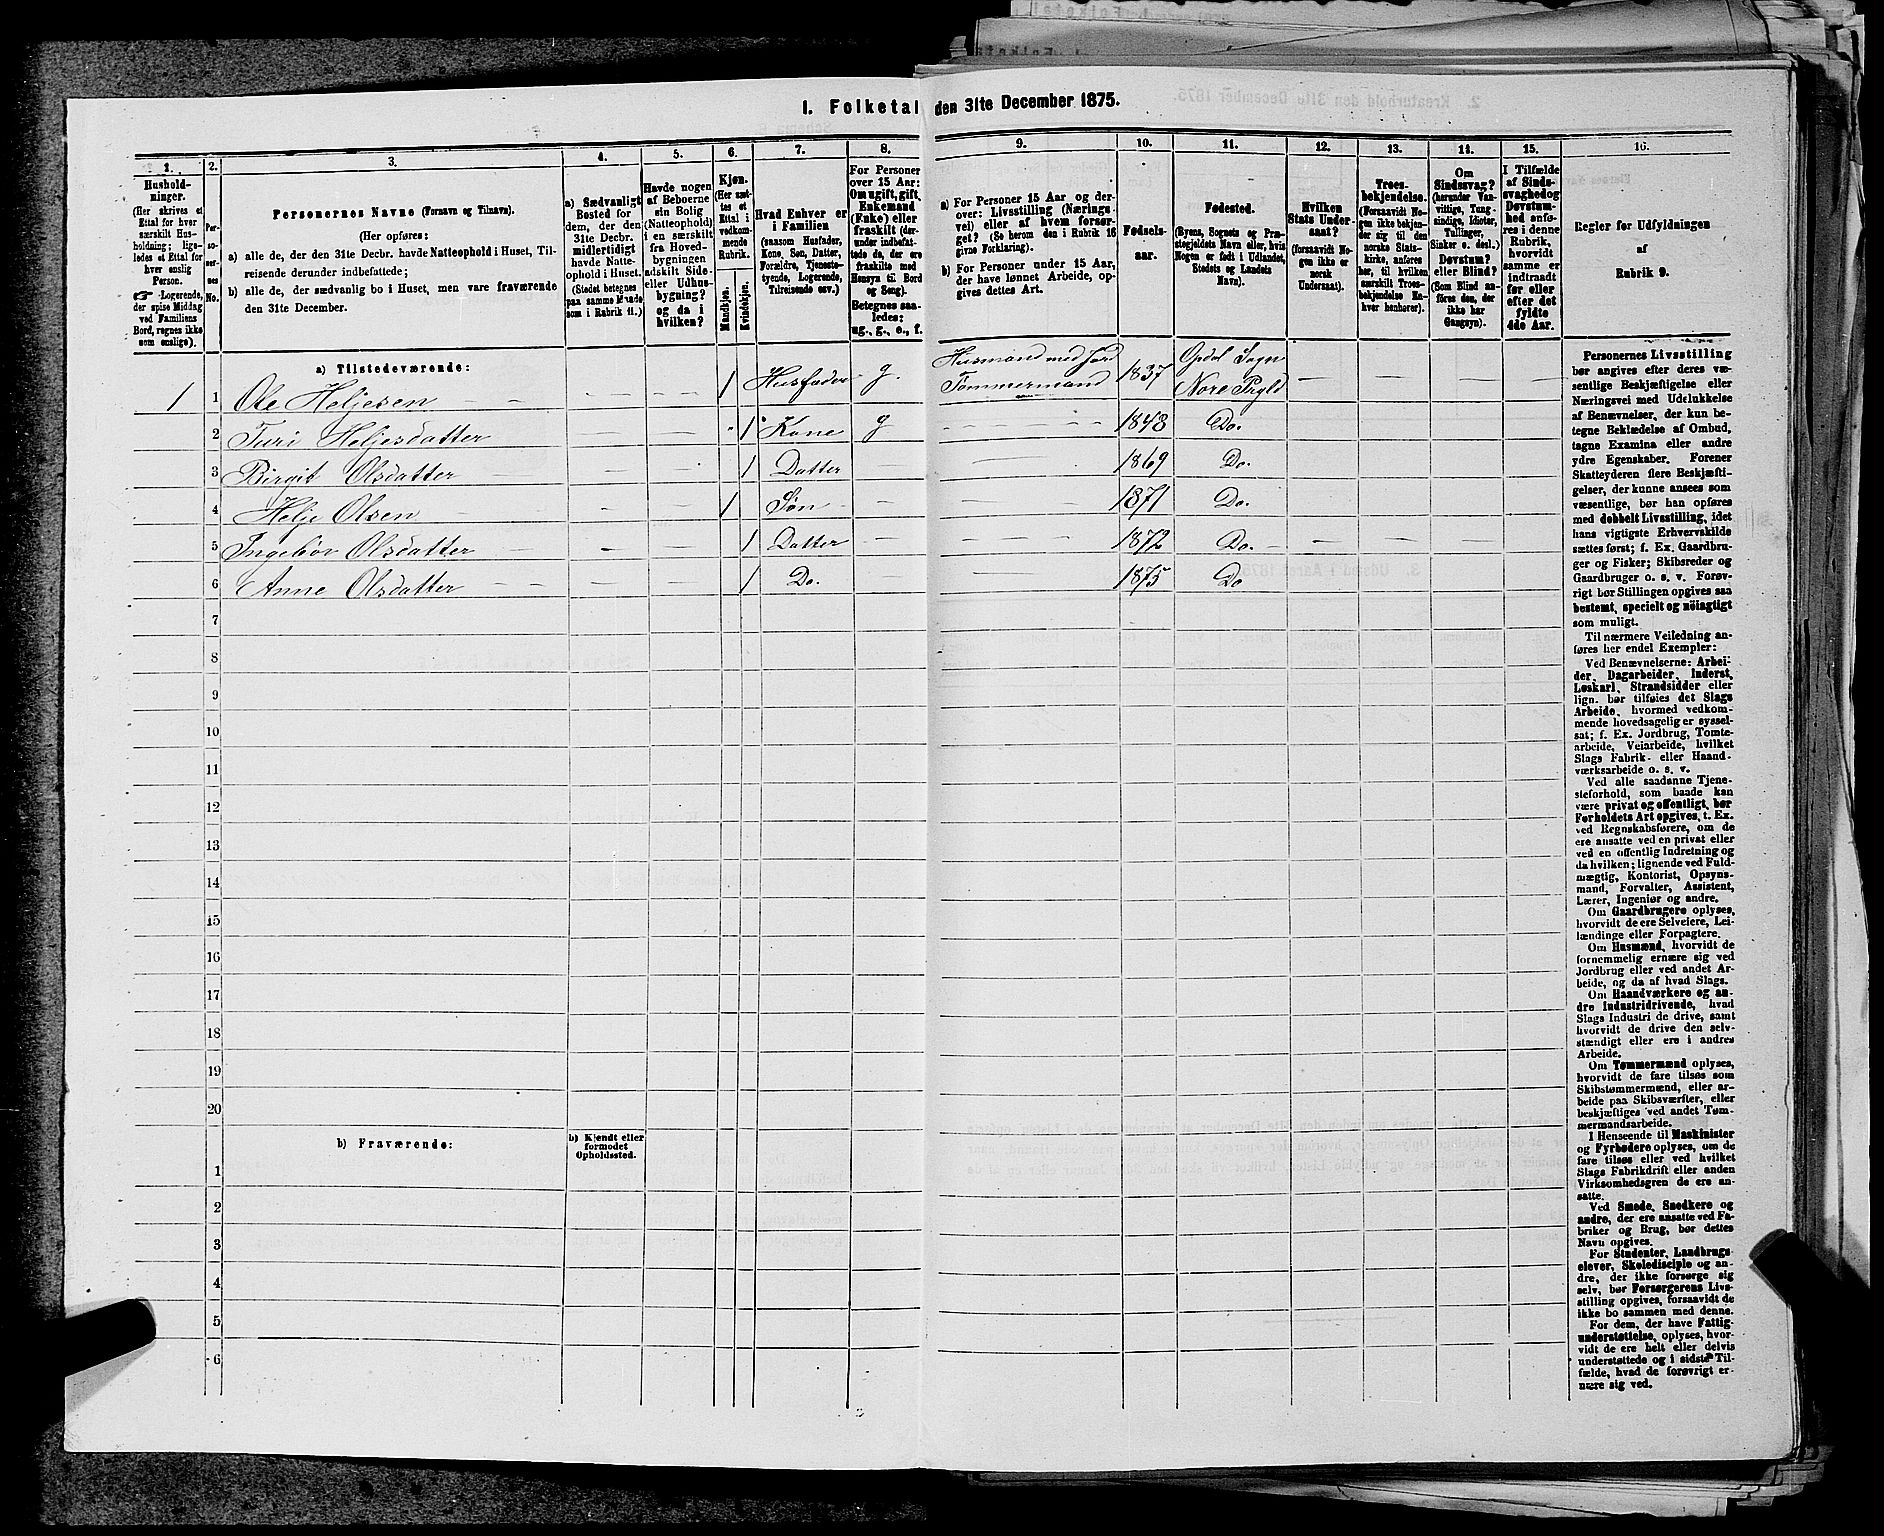 1. Folketal den 31te December 1875.
1.
2.
3.
4.
5.
6.
7.
8.
9.
10.
11.
12.
13.
14.
15.
16.
Hushold-
ninger.
(Her skrives et
Ettal for hver
særskilt Hus-
holdning; lige-
ledes et Ettal for
hver enslig
Person.
☞ Logerende,
der spise Middag
ved Familiens
Bord, regnes ikke
som enslige).
Per-
so-
ner-
nes
No.
Personernes Navne (Fornavn og Tilnavn).
(Her opføres:
a) alle de, der den 31te Decbr. havde Natteophold i Huset, Til-
reisende derunder indbefattede;
b) alle de, der sædvanlig bo i Huset, men vare fraværende
den 31te December.
a) Sædvanligt
Bosted for
dem, der den
31te Decbr.
midlertidigt
havde Natte-
ophold i Huset.
(Stedet betegnes
paa samme Maade
som i Rubrik 11.)
Havde nogen
af Beboerne
sin Bolig
(Natteophold)
i en særskilt
fra Hoved-
bygningen
adskilt Side-
eller Udhus-
bygning?
og da i
hvilken?
Kjøn.
(Her sæt-
tes et
Ettal i
vedkom-
mende
Rubrik.
Mandkjøn.
Kvindekjøn.
Hvad Enhver er
i Familien
(saasom Husfader,
Kone, Søn, Datter,
Forældre, Tjeneste-
tyende, Logerende,
Tilreisende osv.)
For Personer
over 15 Aar:
Om ugift, gift,
Enkemand
(Enke) eller
fraskilt (der-
under indbefat-
tede de, der ere
fraskilte med
Hensyn til Bord
og Seng).
Betegnes saa-
ledes:
ug., g., e., f.
a) For Personer 15 Aar og der-
over: Livsstilling (Nærings-
vei) eller af hvem forsør-
get? (Se herom den i Rubrik 16
givne Forklaring).
b) For Personer under 15 Aar,
der have lønnet Arbeide, op-
gives dettes Art.
Fødsels-
aar.
Fødested.
(Byens, Sognets og Præ-
stegjeldets Navn eller, hvis
Nogen er født i Udlandet,
Stedets og Landets
Navn).
Hvilken
Stats Under-
saat?
(forsaavidt No-
gen ikke er
norsk
Undersaat).
Troes-
bekjendelse.
(Forsaavidt No-
gen ikke bekjen-
der sig til den
norske Stats-
kirke, anføres
her, til hvilken
særskilt Troes-
bekjendelse En-
hver henhører).
Om
Sindssvag?
(herunder Van-
vittige, Tung-
sindige, Idioter,
Tullinger,
Sinker o. desl.)
Døvstum?
eller Blind?
(Som Blind an-
føres den, der
ikke har
Gangsyn).
I Tilfælde
af Sinds-
svaghed og
Døvstum-
hed anfø-
res i denne
Rubrik,
hvorvidt
samme er
indtraadt
før eller
efter det
fyldte
4de Aar.
Regler for Udfyldningen
af
Rubrik 9.
a) Tilstedeværende:
1 1 Ole Heljesen — — — 1 Husfader g. Husmand med Jord Tømmermand 1837 Opdal Sogn Nore Prgld — — — —
2 Turi Heljesdatter — — — 1 Kone g — 1843 Do.
3 Birgit Olsdatter — — — 1 Datter — — 1869 Do.
4 Helje Olsen — — — 1 Søn — — 1871 Do.
5 Ingebor Olsdatter — — — 1 Datter — — 1872 Do. — — — —
6 Anne Olsdatter — — — 1 Do. — — 1875 Do
7
8
9
10
11
12
13
14
15
16
17
18
19
20
b) Fraværende:
b) Kjendt eller
formodet
Opholdssted.
1
2
3
4
5
6
Personernes Livsstilling
bør angives efter deres væ-
sentlige Beskjæftigelse eller
Næringsvei med Udelukkelse
af Benævnelser, der kun be-
tegne Beklædelse af Ombud,
tagne Examina eller andre
ydre Egenskaber. Forener
Skatteyderen flere Beskjæfti-
gelser, der kunne ansees som
væsentlige, bør han opføres
med dobbelt Livsstilling, idet
hans vigtigste Erhvervskilde
sættes først; f. Ex. Gaardbru-
ger og Fisker; Skibsreder og
Gaardbruger o. s. v. Forøv-
rigt bør Stillingen opgives saa
bestemt, specielt og nöiagtigt
som muligt.
Til nærmere Veiledning an-
føres her endel Exempler:
Ved Benævnelserne: Arbei-
der, Dagarbeider, Inderst,
Løskarl, Strandsidder eller
lign. bør tilføies det Slags
Arbeide, hvormed vedkom-
mende hovedsagelig er syssel-
sat; f. Ex. Jordbrug, Tomte-
arbeide, Veiarbeide, hvilket
Slags Fabrik- eller Haand-
værksarbeide o. s. v.
Ved alle saadanne Tjene-
steforhold, som baade kan
være privat og offentligt, bør
Forholdets Art opgives, t. Ex.
ved Regnskabsførere, om de
ere ansatte ved en privat eller
ved en offentlig Indretning og
da hvilken; lignende ved Fuld-
mægtig, Kontorist, Opsyns-
mand, Forvalter, Assistent,
Lærer, Ingeniør og andre.
Om Gaardbrugere oplyses,
hvorvidt de ere Selveiere, Lei-
lændinge eller Forpagtere.
Om Husmænd, hvorvidt de
fornemmelig ernære sig ved
Jordbrug eller ved andet Ar-
beide, og da af hvad Slags.
Om Haandværkere og an-
dre Industridrivende, hvad
Slags Industri de drive, samt
hvorvidt de drive den selv-
stændigt eller ere i andres
Arbeide.
Om Tømmermænd oplyses,
hvorvidt de fare tilsøs som
Skibstømmermænd, eller ar-
beide paa Skibsværfter, eller
beskjæftiges ved andet Tøm-
mermandsarbeide.
I Henseende til Maskinister
og Fyrbødere oplyses, om de
fare tilsøs eller ved hvilket
Slags Fabrikdrift eller anden
Virksomhedsgren de ere an-
satte.
Ved Smede, Snedkere og
andre, der ere ansatte ved Fa-
briker og Brug, bør dettes
Navn opgives.
For Studenter, Landbrugs-
elever, Skoledisciple og an-
dre, der ikke forsørge sig
selv, bør Forsørgerens Livs-
stilling opgives, forsaavidt de
ikke bo sammen med denne.
For dem, der have Fattig-
understøttelse, oplyses, hvor-
vidt de ere helt eller delvis
understøttede og i sidste Til-
fælde, hvad de forøvrigt er-
nære sig ved.